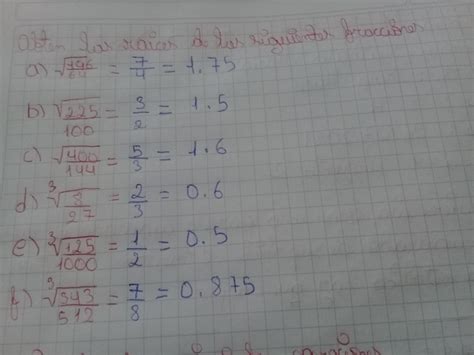 Obten las raices de las siguientes fracciones
a) √196/64 = 7/4 = 1.75
b) √225/100 = 3/2 = 1.5
c) √400/144 = 5/3 = 1.6
d) ³√8/27 = 2/3 = 0.6
e) ³√125/1000 = 1/2 = 0.5
f) ³√343/512 = 7/8 = 0.875